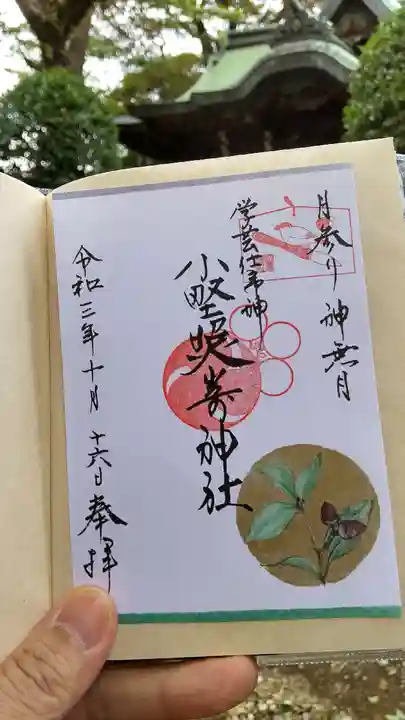 月参り 神無月
学芸仕事神
小野照崎神社
令和三年十月十六日奉拝